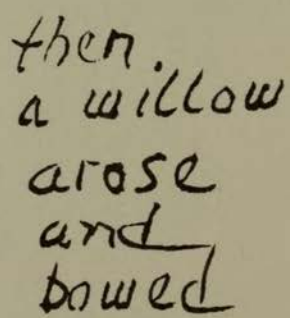 then.
a willow
arose
and
bowed